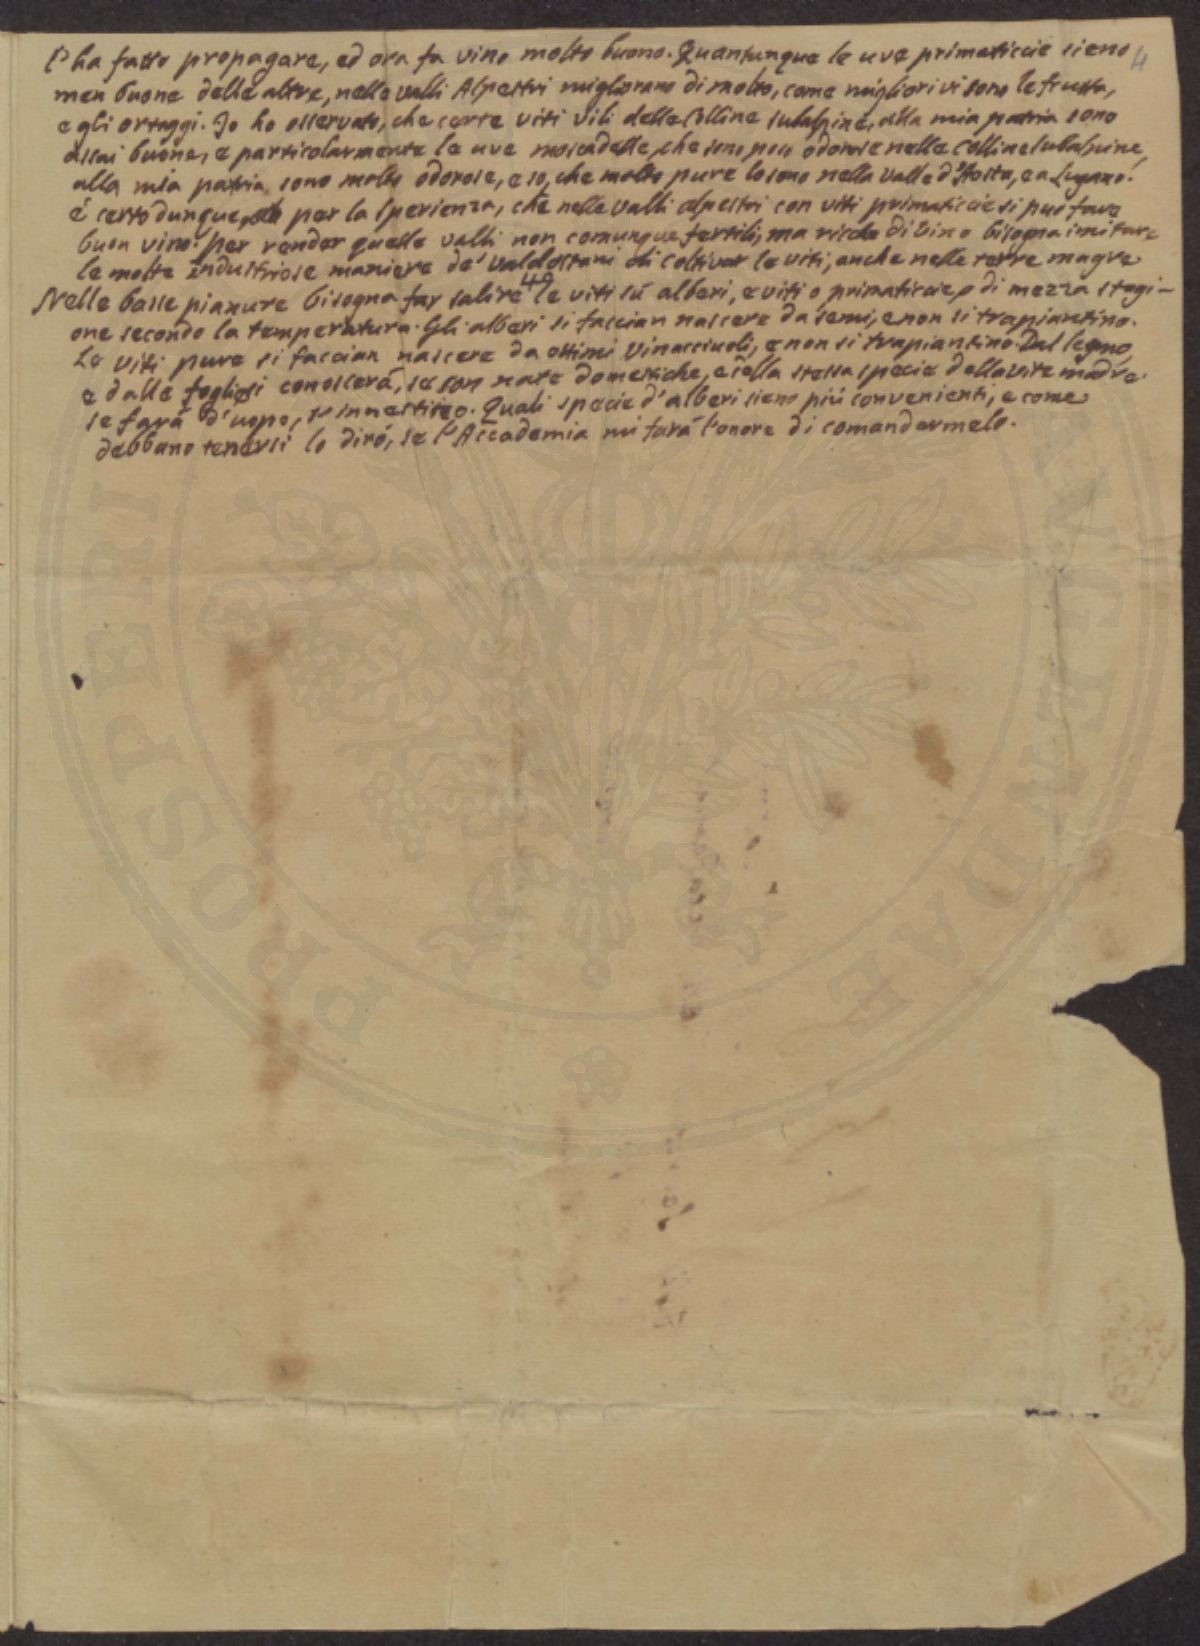 l'ha fatto propagare, ed ora fa vino molto buono. Quantunque le uve primaticcie sieno 4
men buone delle altre, nelle valli Alpestri migliorano di molto, come migliori vi sono le frutta,
e gli ortaggi. Io ho osservato, che certe viti vili delle Colline subalpine, alla mia patria sono
assai buone, e particolarmente le uve moscadelle, che sono poco odorose nelle Colline subalpine,
alla mia patria sono molto odorose, e so, che molto pure lo sono nella valle d'Aosta, e a Lugano.
é certo dunque, per la sperienza, che nelle valli alpestri con viti primaticcie si può fare
buon vino: per render quelle valli non comunque fertili, ma ricche di vino bisogna imitare
le molte industriose maniere de' valdostani di coltivar le viti, anche nelle terre magre
49
Nelle basse pianure bisogna far salire le viti sú alberi, e viti o primaticcie, o di mezza stagi-
one secondo la temperatura. Gli alberi si faccian nascere da semi, e non si trapiantino.
Le viti pure si faccian nascere da ottimi vinacciuoli, e non si trapiantino. Dal legno,
e dalle foglie si conoscerá, se son nate domestiche, e della stessa specie della vite madre.
se fará d'uopo, s'innestino. Quali specie d'alberi sieno piú convenienti, e come
debbano tenersi lo diró, se l'Accademia mi fará l'onore di comandarmelo.
PROSPERI
AVGENDAE